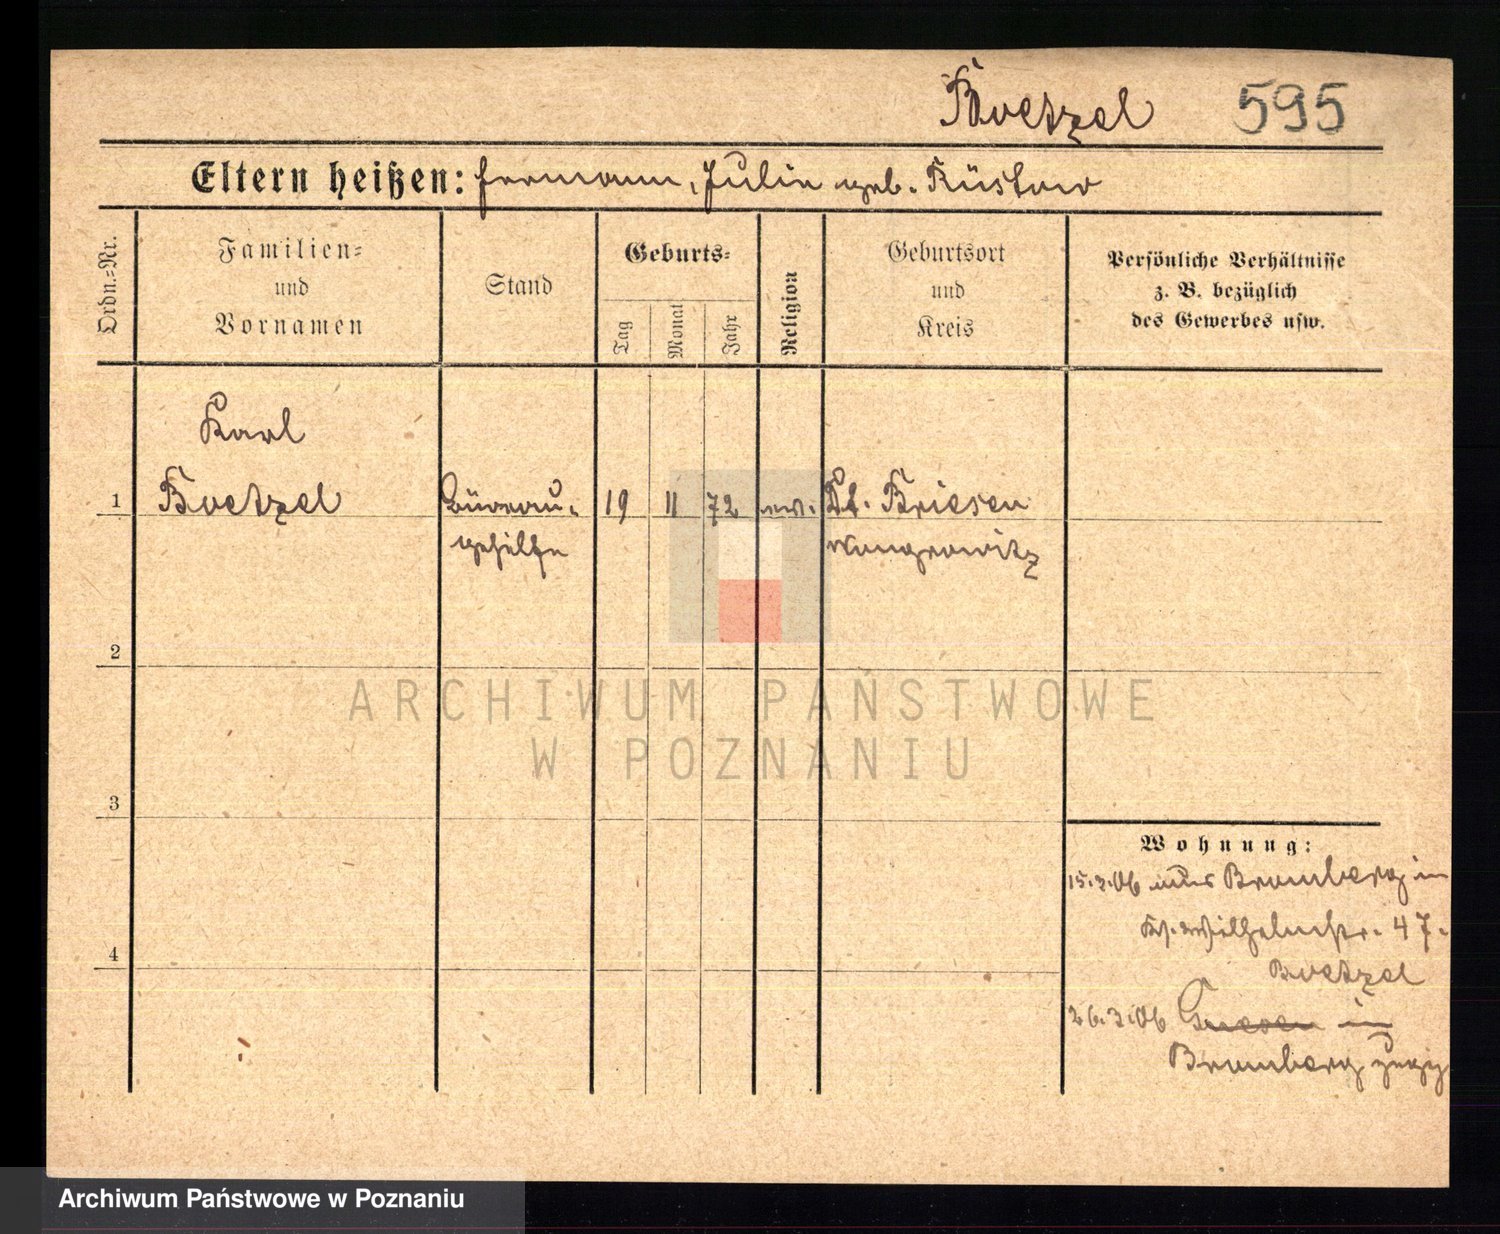 Boetzel 595
Eltern heißen: Hermann, Julie geb. Rüstow
Ordn.=Nr.
Familien=
und
Vornamen
Stand
Geburts=
Tag
Monat
Jahr
Religion
Geburtsort
und
Kreis
Persönliche Verhältnisse
z. B. bezüglich
des Gewerbes usw.
Karl
1 Boetzel Büreau- 19 11 72 ev. Dt. Briesen
gehilfe Wongrowitz
2
ARCHIWUM PAŃSTWOWE
W POZNANIU
3
Wohnung:
15.3.06 aus Bromberg in
Wilhelmstr. 47.
Boetzel
4
26.3.06 Gnesen in
Bromberg
Archiwum Państwowe w Poznaniu